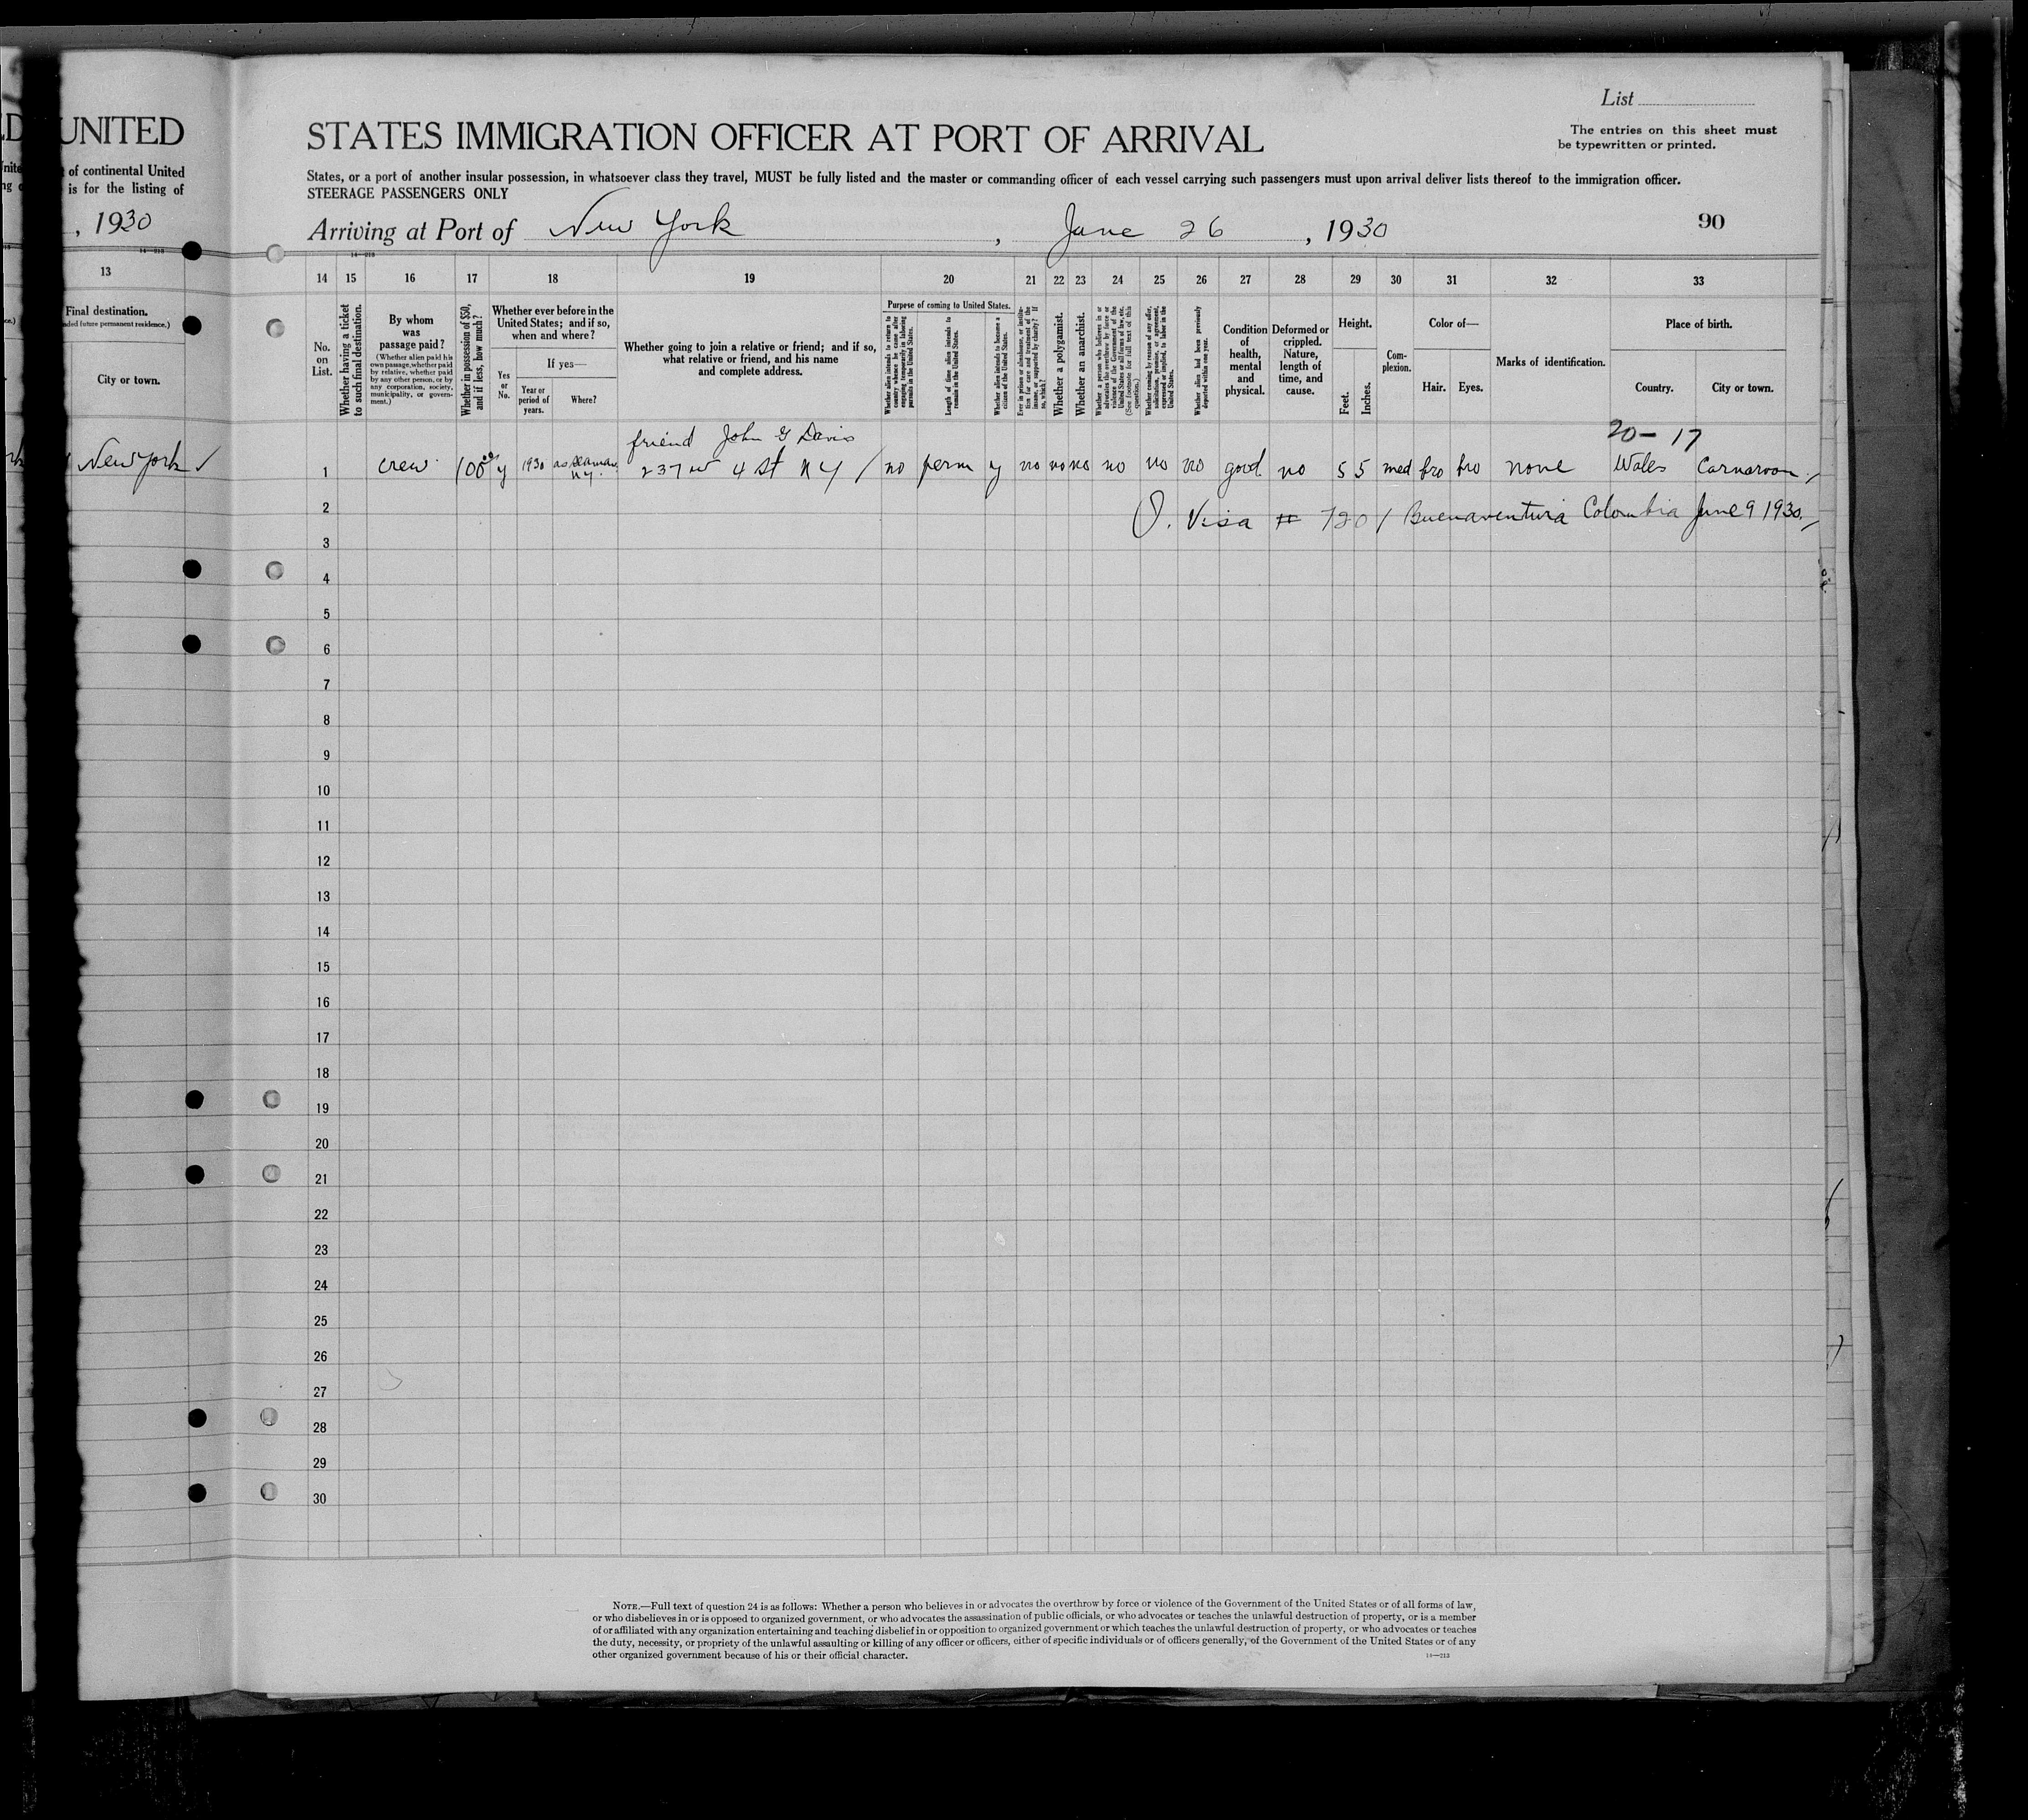 List
UNITED
STATES IMMIGRATION OFFICER AT PORT OF ARRIVAL
The entries on this sheet must
be typewritten or printed.
of continental United
is for the listing of
States, or a port of another insular possession, in whatsoever class they travel, MUST be fully listed and the master or commanding officer of each vessel carrying such passengers must upon arrival deliver lists thereof to the immigration officer.
STEERAGE PASSENGERS ONLY
, 1930
Arriving at Port of New York, June 26, 1930
90
13 14 15 16 17 18 19 20 21 22 23 24 25 26 27 28 29 30 31 32 33
Final destination.
City or town.
No. on List.
Whether having a ticket to such final destination.
By whom was passage paid?
(Whether alien paid his own passage, whether paid by relative, whether paid by any other person, or by any corporation, society, municipality, or government.)
Whether in possession of $50, and if less, how much?
Whether ever before in the United States; and if so, when and where?
If yes—
Yes or No.
Year or period of years.
Where?
Whether going to join a relative or friend; and if so, what relative or friend, and his name and complete address.
Purpose of coming to United States.
Whether alien intends to return to country whence he came after engaging temporarily in laboring pursuits in the United States.
Length of time alien intends to remain in the United States.
Whether alien intends to become a citizen of the United States.
Ever in prison or almshouse, or institution for care and treatment of the insane, or supported by charity? If so, which?
Whether a polygamist.
Whether an anarchist.
Whether a person who believes in or advocates the overthrow by force or violence of the Government of the United States or all forms of law, etc. (See footnote for full text of this question.)
Whether coming by reason of any offer, solicitation, promise, or agreement, expressed or implied, to labor in the United States.
Whether alien had been previously deported within one year.
Condition of health, mental and physical.
Deformed or crippled. Nature, length of time, and cause.
Height.
Feet.
Inches.
Complexion.
Color of—
Hair.
Eyes.
Marks of identification.
Place of birth.
Country.
City or town.
20 - 17
friend John G Davis
New York 1 crew 100 00 y 1930 as seaman N.Y. 237 W 4 St N Y / no perm y no no no no no no good no 5 5 med bro bro none Wales Carnarvon
2 Visa # 720 / Buenaventura Colombia June 9 1930
3
4
5
6
7
8
9
10
11
12
13
14
15
16
17
18
19
20
21
22
23
24
25
26
27
28
29
30
NOTE.—Full text of question 24 is as follows: Whether a person who believes in or advocates the overthrow by force or violence of the Government of the United States or of all forms of law,
or who disbelieves in or is opposed to organized government, or who advocates the assassination of public officials, or who advocates or teaches the unlawful destruction of property, or is a member
of or affiliated with any organization entertaining and teaching disbelief in or opposition to organized government or which teaches the unlawful destruction of property, or who advocates or teaches
the duty, necessity, or propriety of the unlawful assaulting or killing of any officer or officers, either of specific individuals or of officers generally, of the Government of the United States or of any
other organized government because of his or their official character.